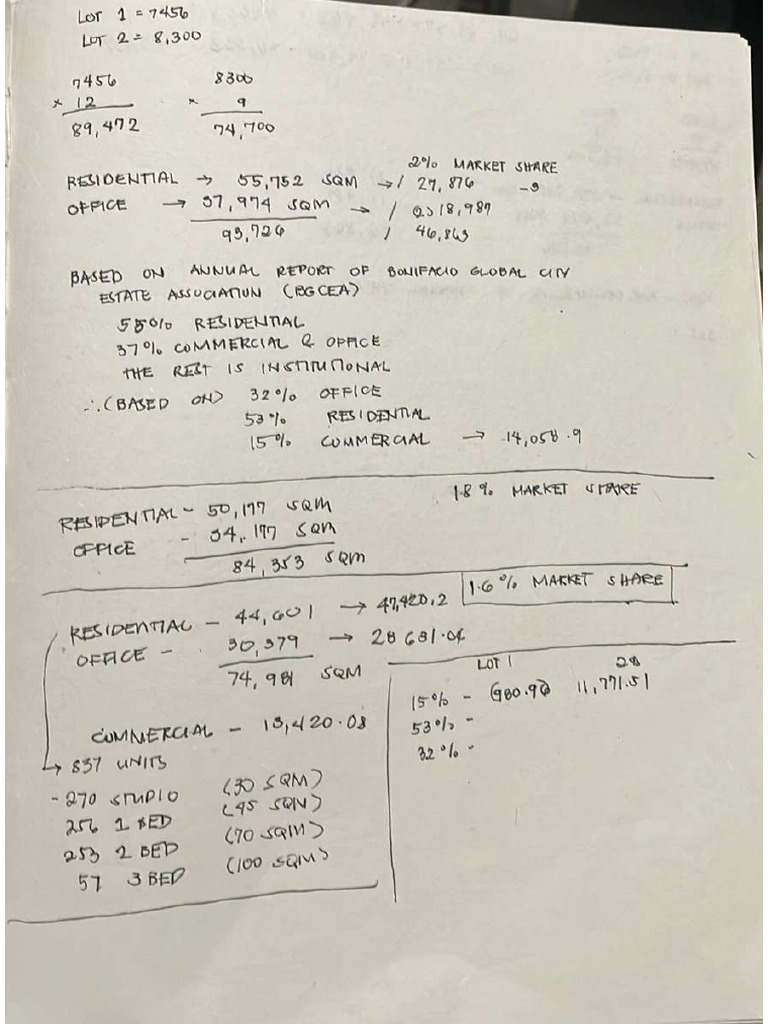 LOT 1 = 7456
LOT 2 = 8,300
7456 8300
x 12 x 9
89,472 74,700
2% MARKET SHARE
RESIDENTIAL → 55,752 SQM → / 27,876 -9
OFFICE → 37,974 SQM → / 18,987
93,726 / 46,863
BASED ON ANNUAL REPORT OF BONIFACIO GLOBAL CITY
ESTATE ASSOCIATION (BGCEA)
55% RESIDENTIAL
37% COMMERCIAL & OFFICE
THE REST IS INSTITUTIONAL
∴ (BASED ON) 32% OFFICE
53% RESIDENTIAL
15% COMMERCIAL → 14,058.9
1.8% MARKET SHARE
RESIDENTIAL - 50,177 SQM
OFFICE - 34,177 SQM
84,353 SQM
1.6% MARKET SHARE
RESIDENTIAL - 44,601 → 47,420.2
OFFICE - 30,379 → 28631.04
74,981 SQM
LOT 1
15% - 11,771.51
53% -
32% -
COMMERCIAL - 13,420.08
→ 837 UNITS
- 270 STUDIO (30 SQM)
256 1 BED (45 SQM)
253 2 BED (70 SQM)
57 3 BED (100 SQM)